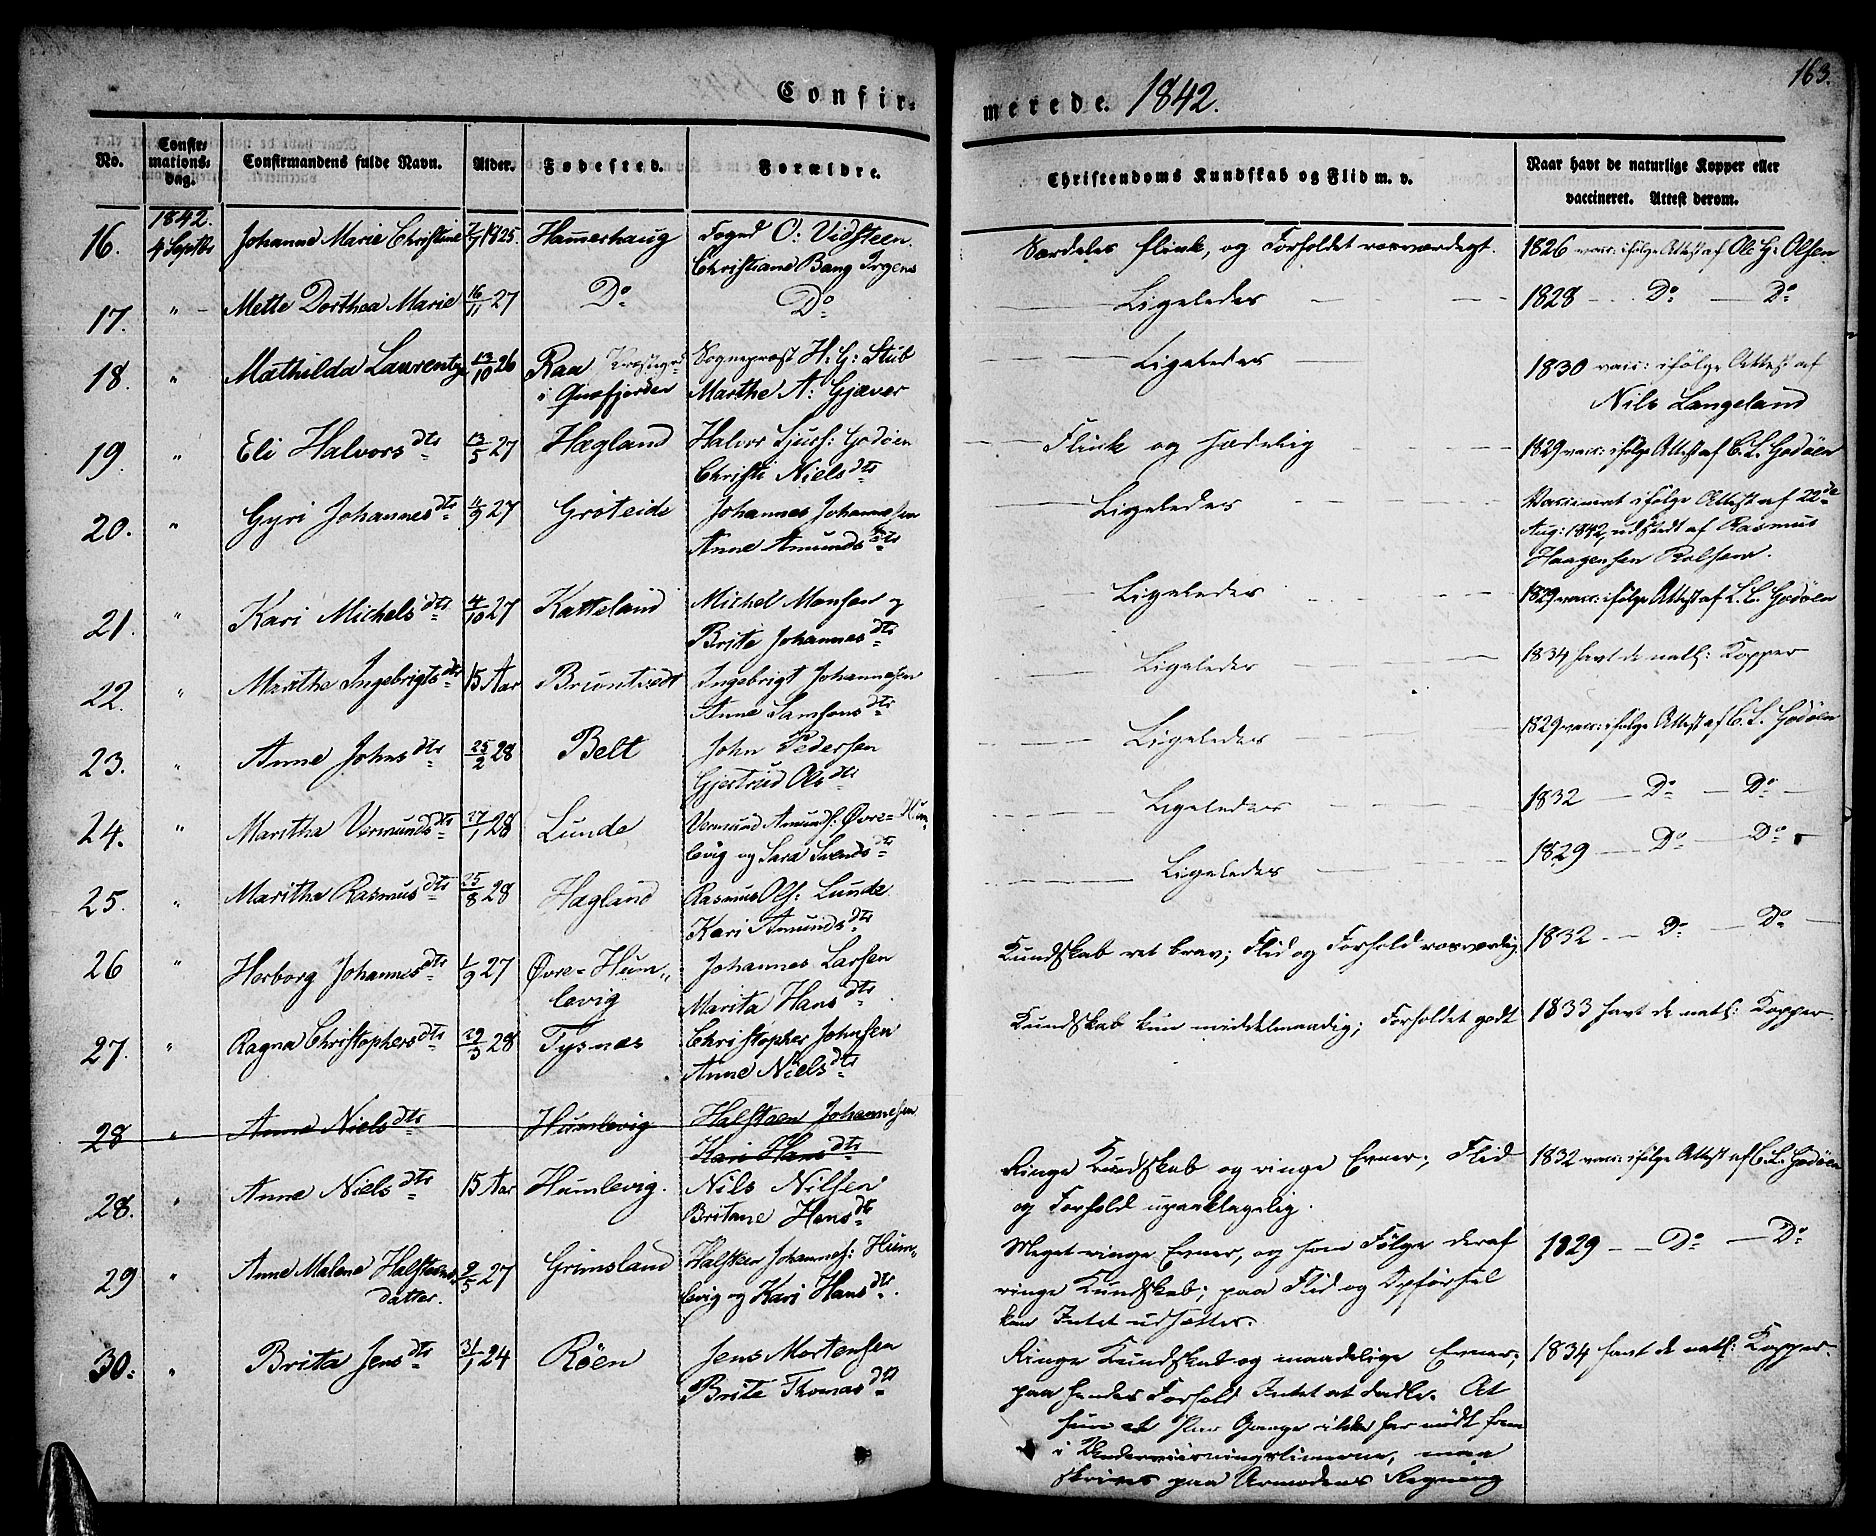 163.
Confir-
merede. 1842.
No.
Confir-
mations-
dag.
Confirmandens fulde Navn.
Alder.
Fødested.
Forældre.
Christendoms Kundskab og Flid m. v.
Naar havt de naturlige Kopper eller
vaccineret. Attest derom.
1842.
16. 4 Septbr Johanne Marie Christine 1825 Hamerhaug Foged O: Vidsteen.
Christiane Bang Irgens
Særdeles flink, og Forholdet rosværdigt. 1826 vacc: ifølge Attest af Ole G: Olsen
17. " Mette Dorthea Marie 16/11 27 Do Do
Ligeledes 1828 Do Do
18. " Mathilda Laurentze 13/10 26 Raa Præstegrd Sognepræst H: G: Stub
i Qvæfjorden Marthe A: Gjæver
Ligeledes 1830 vacc: ifølge Attest af
Nils Langeland
19. " Eli Halvorsdtr 13/5 27 Hægland Halvor Sjurs: Godøen
Christi Nielsdtr
Flink og sædelig 1829 vacc: ifølge Attest af C. L. Godøen
20. " Gyri Johannesdtr 4/9 27 Grøteide Johannes Johannessen
Anne Amundsdtr
Ligeledes Vaccineret ifølge Attest af 22de
Aug: 1842, udstædt af Rasmus
Haagensen Rolsven.
21. " Kari Michelsdtr 4/10 27 Katteland Michel Monsen og
Brite Johannesdtr
Ligeledes 1829 vacc: ifølge Attest af L. C. Godøen
22. " Marithe Ingebrigtsdtr 15 Aar Bruntvedt Ingebrigt Johannessen
Anne Samsonsdtr
Ligeledes 1834 havt de natl: Kopper
23. " Anne Johnsdtr 25/2 28 Belt John Pedersen
Gjertrud Olsdtr
Ligeledes 1829 vacc: ifølge Attest af C. L. Godøen
24. " Maritha Vermundsdtr 27/1 28 Lunde Vermund Amunds: Øvre-Hum-
levig og Sara Svendsdtr
Ligeledes 1832 Do Do
25. " Maritha Rasmusdtr 25/8 28 Hægland Rasmus Ols: Lunde
Kari Amundsdtr
Ligeledes 1829 Do Do
26 " Herborg Johannesdtr 1/9 27 Øvre-Hum- Johannes Larsen
levig Marita Hansdtr
Kundskab ret brav; Flid og Forhold rosværdig. 1832 Do Do
27. " Ragna Christophersdtr 29/3 28 Tysnæs Christopher Johnsen
Anne Nielsdtr
Kundskab kun middelmaadig; Forholdet godt 1833 havt de natl: Kopper.
28 " Anne Nielsdtr Humlevig Halsteen Johannessen
Kari Hansdtr
28. " Anne Nielsdtr 15 Aar Humlevig. Nils Nilsen
Britane Hansdtr
Ringe Kundskab og ringe Evner; Flid 1832 vacc: ifølge Attest af C. L. Godøen
og Forhold upaaklagelig.
29 " Anne Malene Halsteens- 9/5 27 Grimsland Halsteen Johannes: Hum-
datter. levig og Kari Hansdtr.
Meget ringe Evner, og som Følge deraf 1829 Do Do
ringe Kundskab; paa Flid og Opførsel
kan Intet udsættes.
30. " Brita Jensdtr 31/1 24 Røen Jens Mortensen
Brite Thomasdtr
Ringe Kundskab og maadelige Evner; 1834 havt de natl: Kopper.
paa hendes Forhold Intet at dadle. At
hun et Par Gange ikke har mødt frem
i Underviisningstimerne, maa
skrives paa Armodens Regning